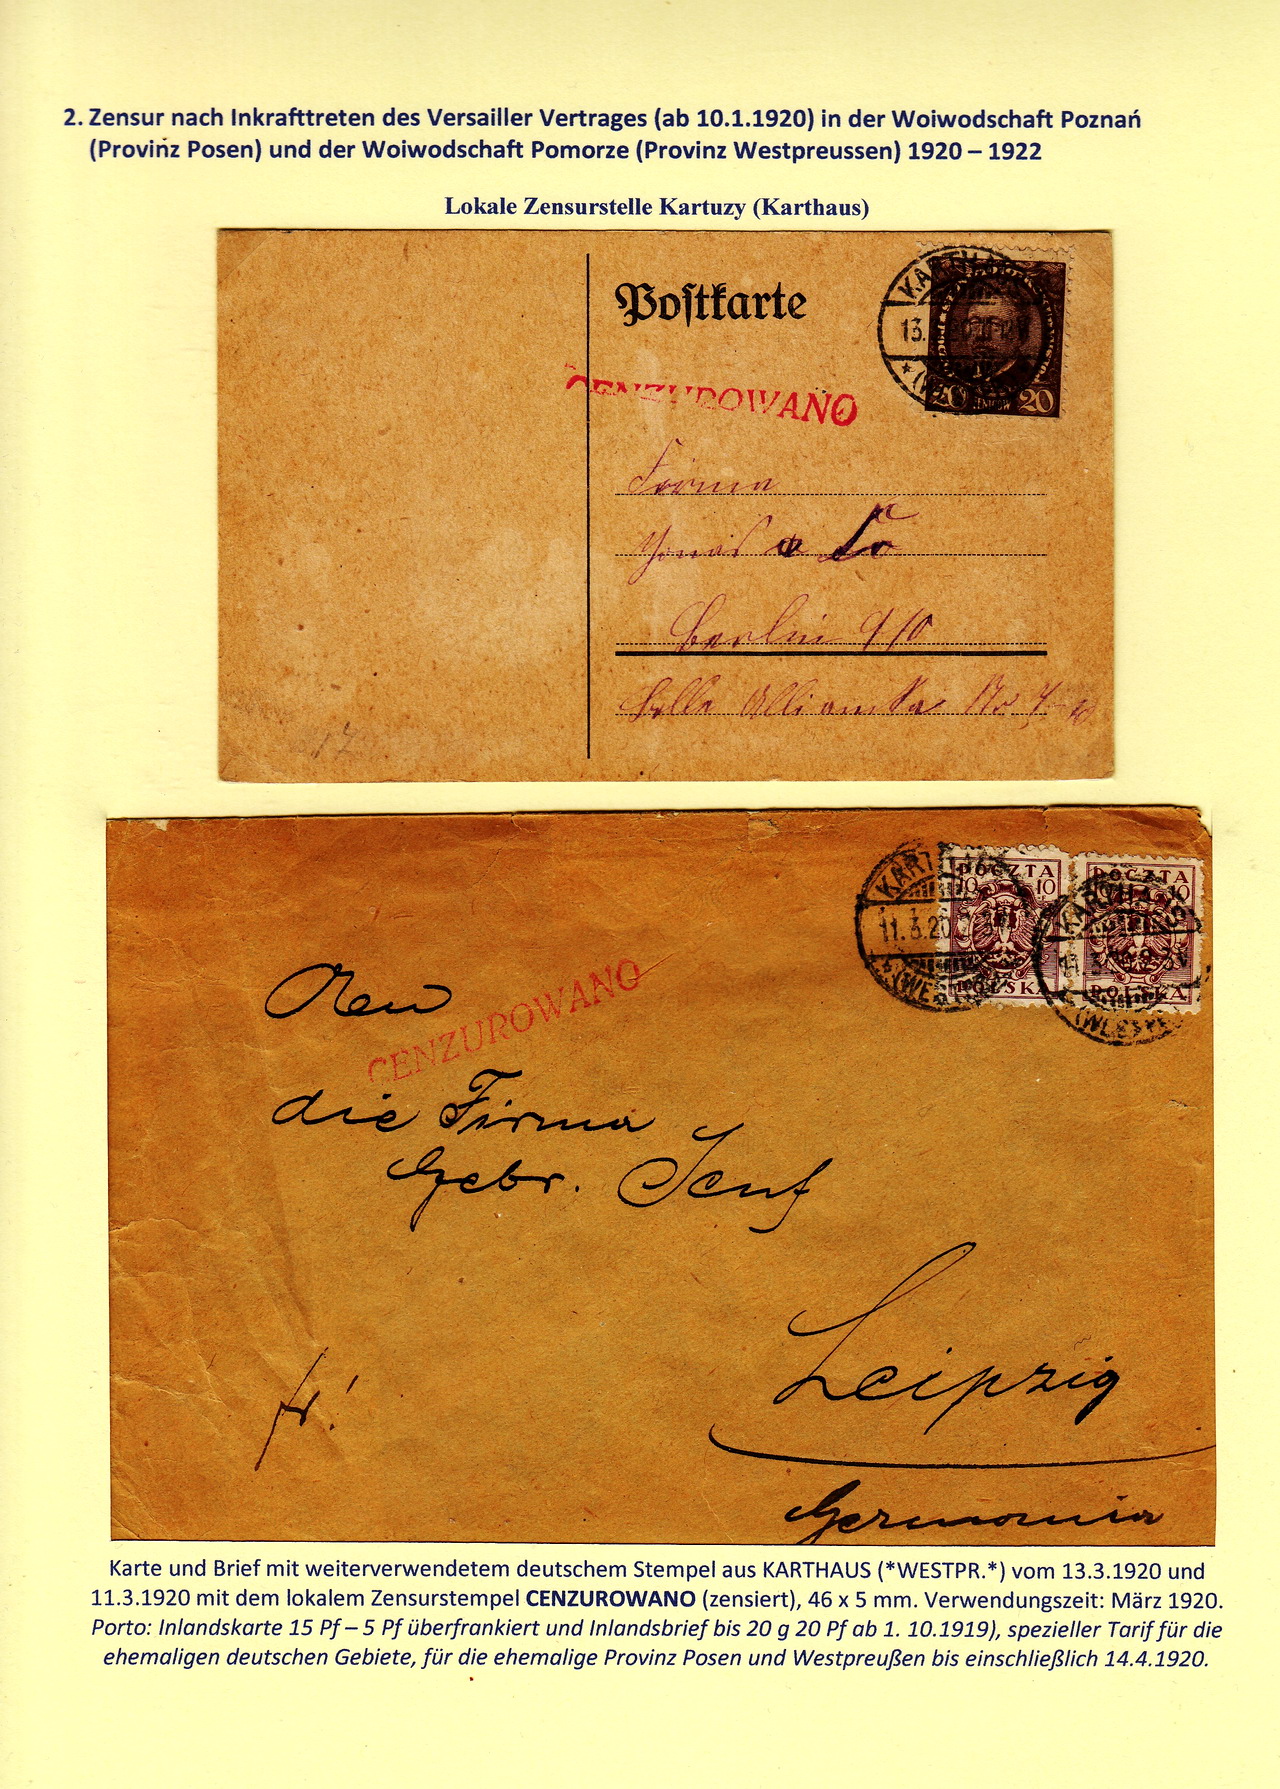 2. Zensur nach Inkrafttreten des Versailler Vertrages (ab 10.1.1920) in der Woiwodschaft Poznań
(Provinz Posen) und der Woiwodschaft Pomorze (Provinz Westpreussen) 1920 – 1922
Lokale Zensurstelle Kartuzy (Karthaus)
Postkarte
20
CENZUROWANO
Firma
& Co
Berlin
Belle
POCZTA POCZTA
10 10 10
KARTHAUS
11.3.20
POLSKA POLSKA
CENZUROWANO
die Firma
Gebr. Senf
Leipzig
fr!
Germania
Karte und Brief mit weiterverwendetem deutschem Stempel aus KARTHAUS (*WESTPR.*) vom 13.3.1920 und
11.3.1920 mit dem lokalem Zensurstempel CENZUROWANO (zensiert), 46 x 5 mm. Verwendungszeit: März 1920.
Porto: Inlandskarte 15 Pf – 5 Pf überfrankiert und Inlandsbrief bis 20 g 20 Pf ab 1. 10.1919), spezieller Tarif für die
ehemaligen deutschen Gebiete, für die ehemalige Provinz Posen und Westpreußen bis einschließlich 14.4.1920.